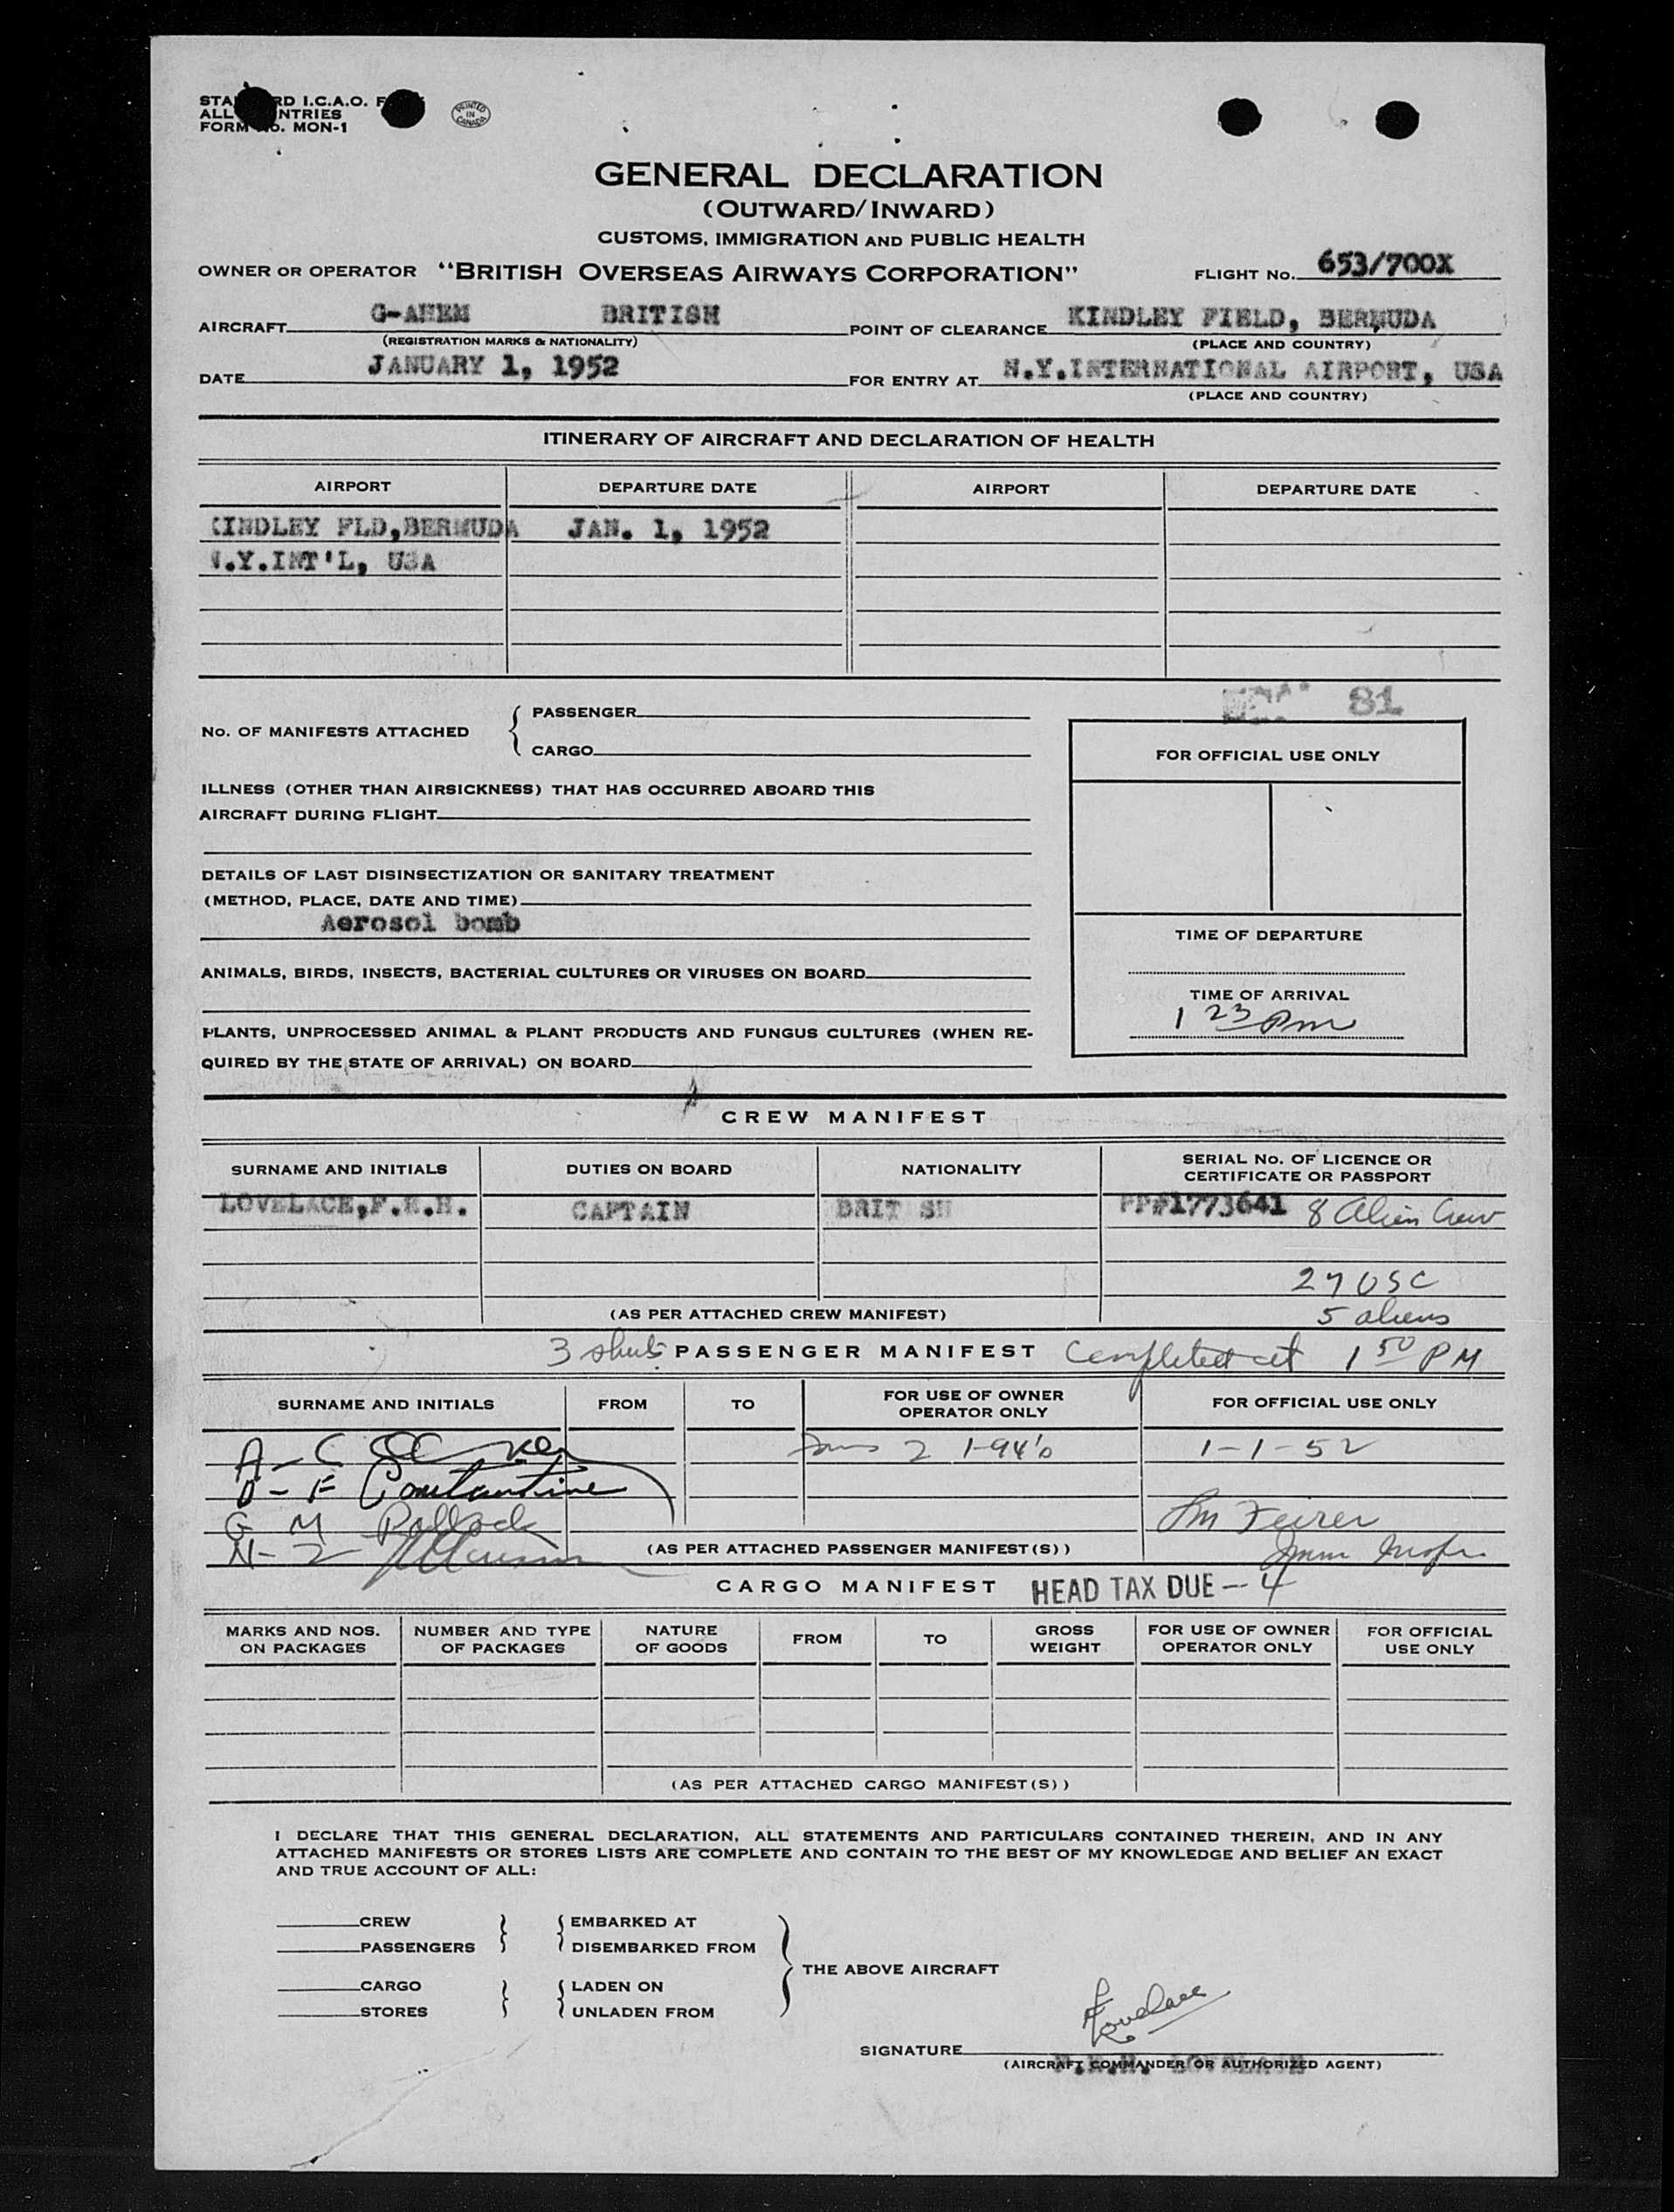 I.C.A.O.
ALL
FORM MON-1
PRINTED IN CANADA
GENERAL DECLARATION
(OUTWARD/INWARD)
CUSTOMS, IMMIGRATION AND PUBLIC HEALTH
OWNER OR OPERATOR "BRITISH OVERSEAS AIRWAYS CORPORATION" FLIGHT No. 653/700X
AIRCRAFT G-AHEM BRITISH POINT OF CLEARANCE KINDLEY FIELD, BERMUDA
(REGISTRATION MARKS & NATIONALITY) (PLACE AND COUNTRY)
DATE JANUARY 1, 1952 FOR ENTRY AT N.Y.INTERNATIONAL AIRPORT, USA
(PLACE AND COUNTRY)
ITINERARY OF AIRCRAFT AND DECLARATION OF HEALTH
AIRPORT DEPARTURE DATE AIRPORT DEPARTURE DATE
KINDLEY FLD,BERMUDA JAN. 1, 1952
N.Y.INT'L, USA
81
No. OF MANIFESTS ATTACHED
PASSENGER
CARGO
FOR OFFICIAL USE ONLY
ILLNESS (OTHER THAN AIRSICKNESS) THAT HAS OCCURRED ABOARD THIS
AIRCRAFT DURING FLIGHT
DETAILS OF LAST DISINSECTIZATION OR SANITARY TREATMENT
(METHOD, PLACE, DATE AND TIME)
Aerosol bomb
TIME OF DEPARTURE
ANIMALS, BIRDS, INSECTS, BACTERIAL CULTURES OR VIRUSES ON BOARD
TIME OF ARRIVAL
1 23 Pm
PLANTS, UNPROCESSED ANIMAL & PLANT PRODUCTS AND FUNGUS CULTURES (WHEN RE-
QUIRED BY THE STATE OF ARRIVAL) ON BOARD
CREW MANIFEST
SURNAME AND INITIALS DUTIES ON BOARD NATIONALITY SERIAL No. OF LICENCE OR
CERTIFICATE OR PASSPORT
LOVELACE,F.E.H. CAPTAIN BRIT SH PP#1773641 8 Alien Crew
27 USC
(AS PER ATTACHED CREW MANIFEST) 5 aliens
3 PASSENGER MANIFEST Completed at 1 50 PM
SURNAME AND INITIALS FROM TO FOR USE OF OWNER
OPERATOR ONLY FOR OFFICIAL USE ONLY
A-C 2 I-94's 1-1-52
D-F Constantine
G M Pollock Feirer
N-Z
(AS PER ATTACHED PASSENGER MANIFEST(S)) Imm Inspr
CARGO MANIFEST HEAD TAX DUE - 4
MARKS AND NOS.
ON PACKAGES NUMBER AND TYPE
OF PACKAGES NATURE
OF GOODS FROM TO GROSS
WEIGHT FOR USE OF OWNER
OPERATOR ONLY FOR OFFICIAL
USE ONLY
(AS PER ATTACHED CARGO MANIFEST(S))
I DECLARE THAT THIS GENERAL DECLARATION, ALL STATEMENTS AND PARTICULARS CONTAINED THEREIN, AND IN ANY
ATTACHED MANIFESTS OR STORES LISTS ARE COMPLETE AND CONTAIN TO THE BEST OF MY KNOWLEDGE AND BELIEF AN EXACT
AND TRUE ACCOUNT OF ALL:
CREW EMBARKED AT
PASSENGERS DISEMBARKED FROM
THE ABOVE AIRCRAFT
CARGO LADEN ON
STORES UNLADEN FROM
Lovelace
SIGNATURE
(AIRCRAFT COMMANDER OR AUTHORIZED AGENT)
F.E.H. LOVELACE